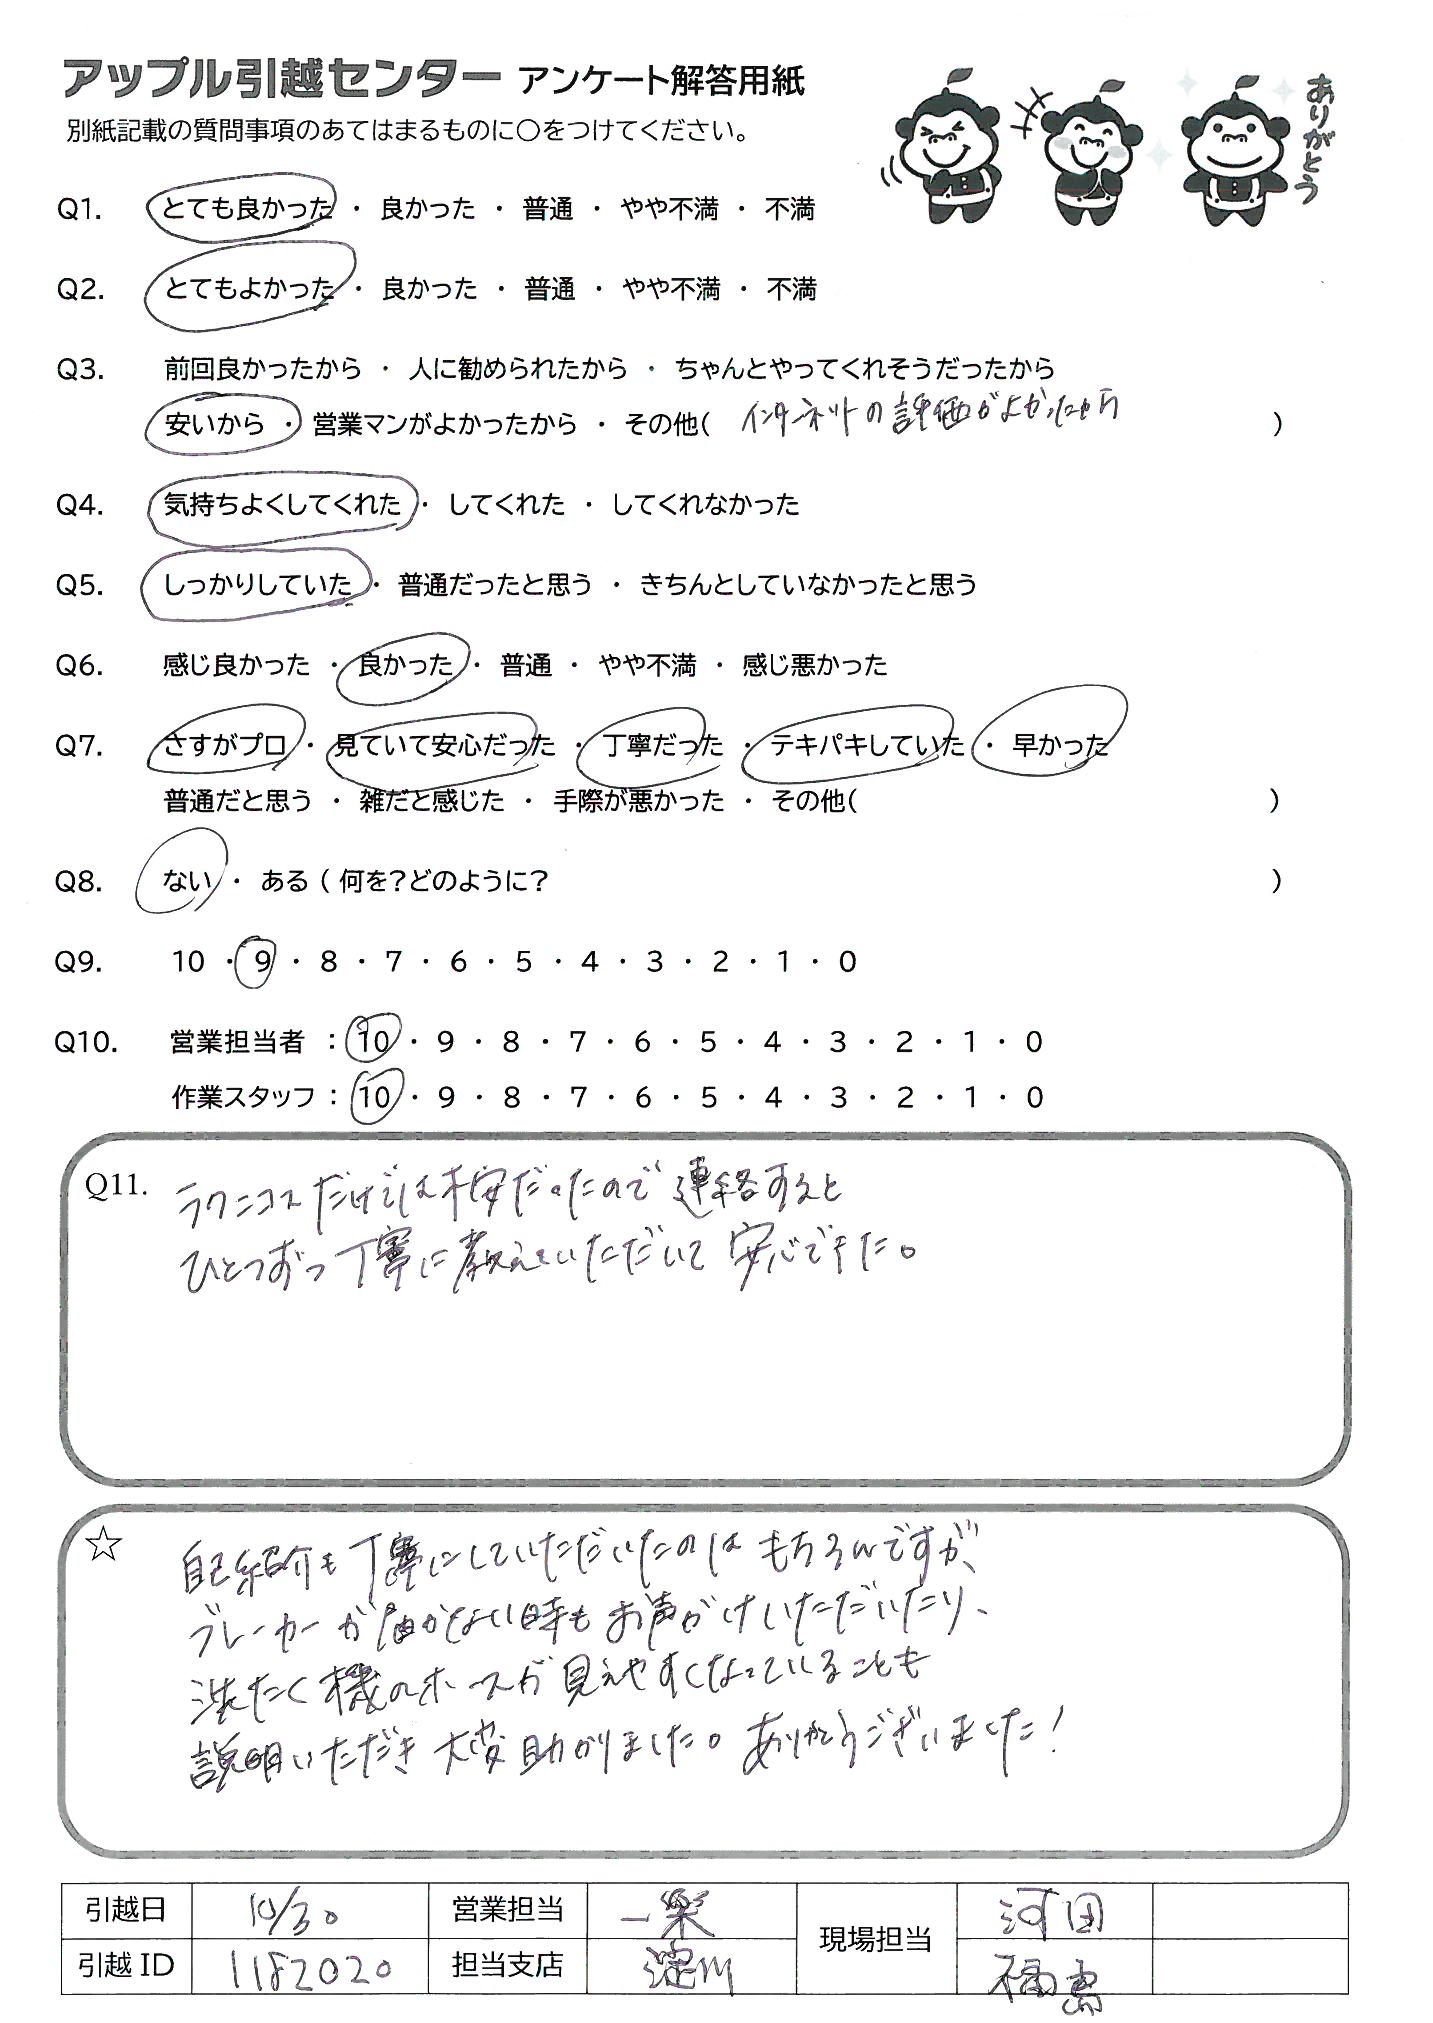 アップル引越センター アンケート解答用紙
別紙記載の質問事項のあてはまるものに〇をつけてください。
ありがとう
Q1. とても良かった ・ 良かった ・ 普通 ・ やや不満 ・ 不満
Q2. とてもよかった ・ 良かった ・ 普通 ・ やや不満 ・ 不満
Q3. 前回良かったから ・ 人に勧められたから ・ ちゃんとやってくれそうだったから
安いから ・ 営業マンがよかったから ・ その他( インターネットの評価がよかったから )
Q4. 気持ちよくしてくれた ・ してくれた ・ してくれなかった
Q5. しっかりしていた ・ 普通だったと思う ・ きちんとしていなかったと思う
Q6. 感じ良かった ・ 良かった ・ 普通 ・ やや不満 ・ 感じ悪かった
Q7. さすがプロ ・ 見ていて安心だった ・ 丁寧だった ・ テキパキしていた ・ 早かった
普通だと思う ・ 雑だと感じた ・ 手際が悪かった ・ その他( )
Q8. ない ・ ある ( 何を?どのように? )
Q9. 10 ・ 9 ・ 8 ・ 7 ・ 6 ・ 5 ・ 4 ・ 3 ・ 2 ・ 1 ・ 0
Q10. 営業担当者 : 10 ・ 9 ・ 8 ・ 7 ・ 6 ・ 5 ・ 4 ・ 3 ・ 2 ・ 1 ・ 0
作業スタッフ : 10 ・ 9 ・ 8 ・ 7 ・ 6 ・ 5 ・ 4 ・ 3 ・ 2 ・ 1 ・ 0
Q11. ラクニコスだけでは不安だったので連絡すると
ひとつずつ丁寧に教えていただいて安心できた。
☆ 自己紹介も丁寧にしていただいたのはもちろんですが、
ブレーカーが届かない時もお声がけいただいたり、
洗たく機のホースが見えやすくなっていることも
説明いただき大変助かりました。ありがとうございました!
引越日 10/30 営業担当 一楽 現場担当 河田
引越 ID 1182020 担当支店 淀川 福島